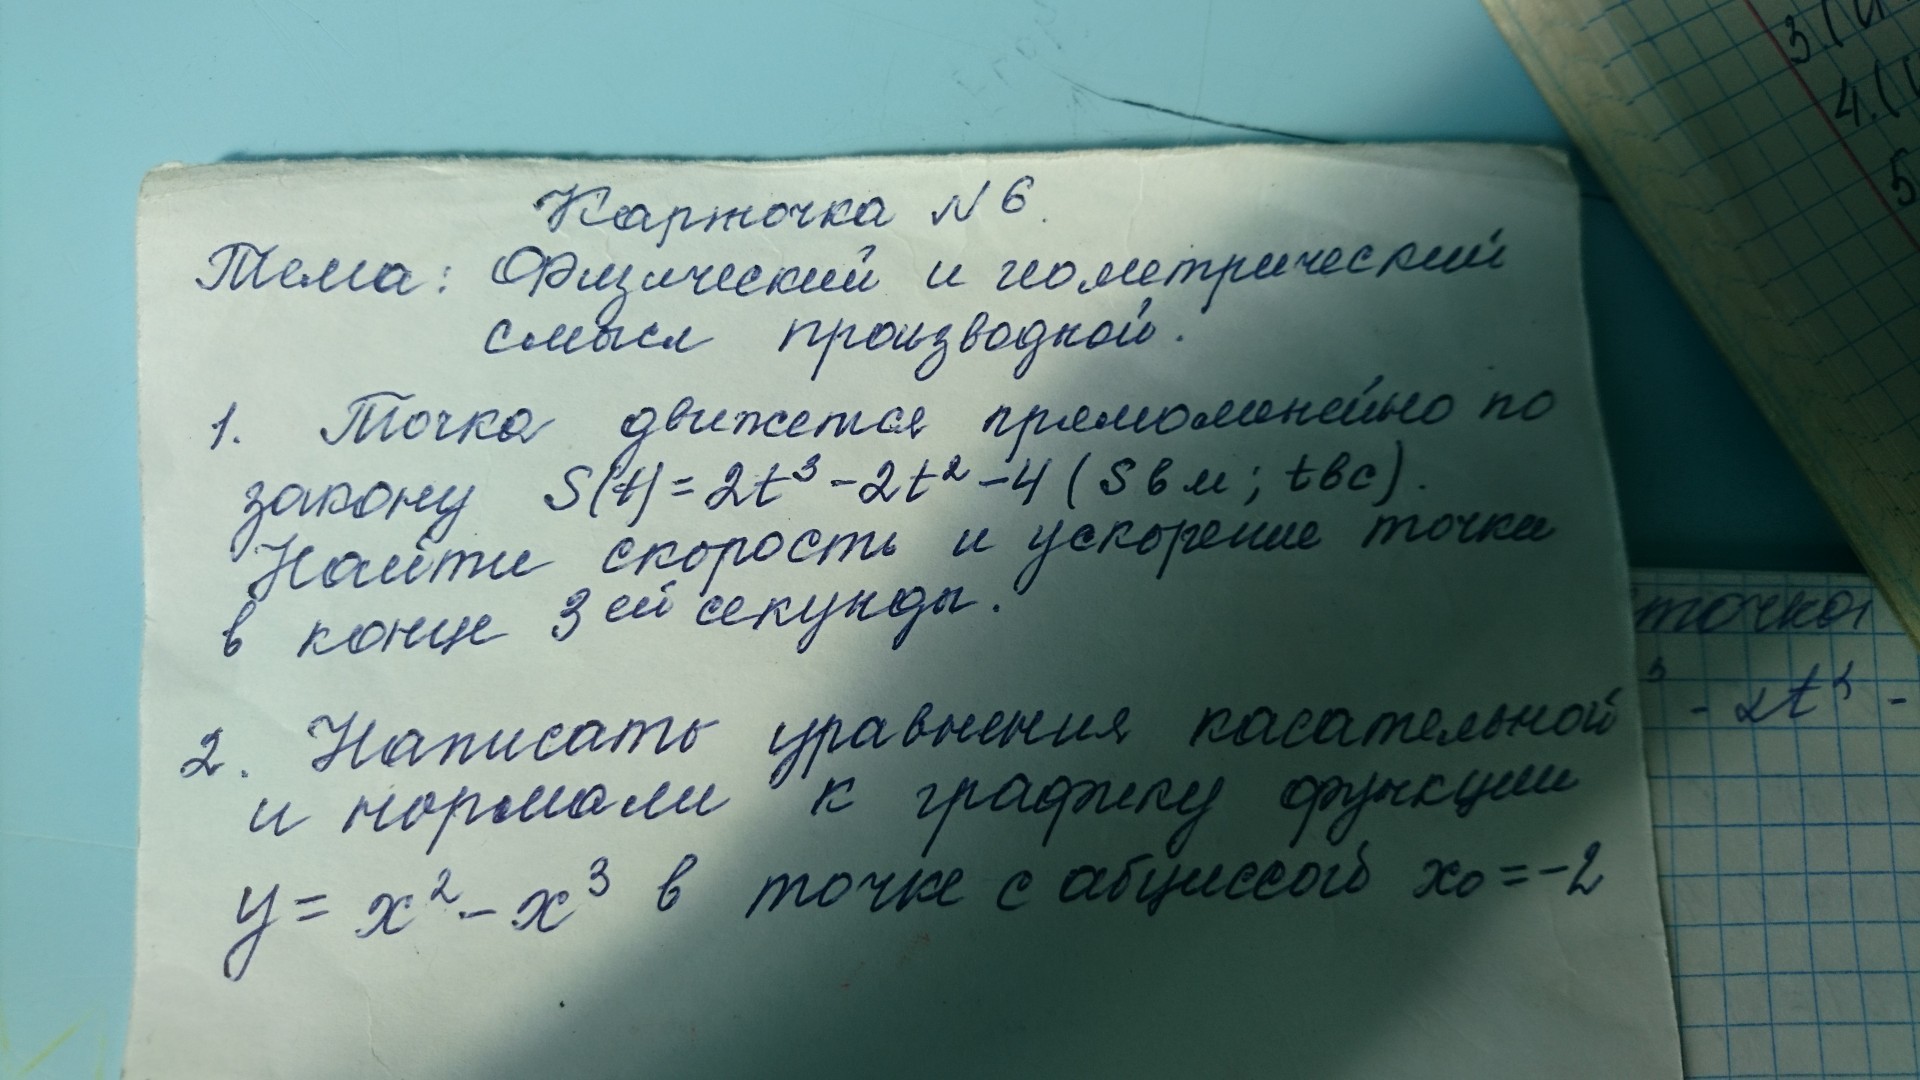 Карточка N 6.
Тема: Физический и геометрический
смысл производной.
1. Точка движется прямолинейно по
закону S(t) = 2t³ - 2t² - 4 (S в м; t в с).
Найти скорость и ускорение точки
в конце 3 ей секунды.
2. Написать уравнения касательной
и нормали к графику функции
y = x² - x³ в точке с абциссой x₀ = -2
3.(
4.(
5
точка
³ - 2t² -